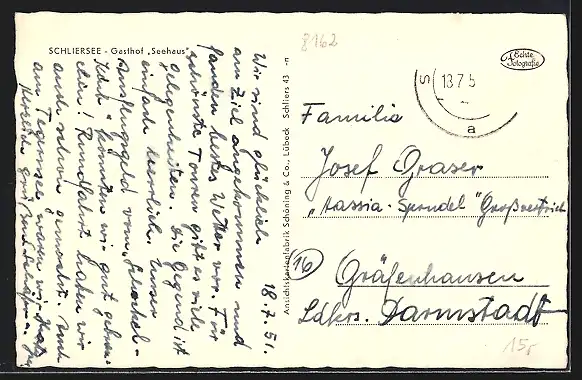 SCHLIERSEE - Gasthof „Seehaus"
18.7.51.
Wir sind glücklich
am Ziel angekommen und
fanden bestes Wetter vor. Für
schönste Touren gibt es viele
Gelegenheiten. Die Gegend ist
einfach herrlich. Unsern
Ausflugsgeld vom
könnten wir gut gebrau-
chen! Rundfahrt haben wir
auch schon gemacht. Auch
am Tegernsee waren wir
Herzliche Grüße
Ansichtskartenfabrik Schöning & Co., Lübeck Schliers 43 -n
8162
Echte Fotografie
S 13.7.5
a
Familie
Josef Graser
„Hassia-Sprudel" Großvertrieb
16
Gräfenhausen
Ldkrs. Darmstadt
15,-